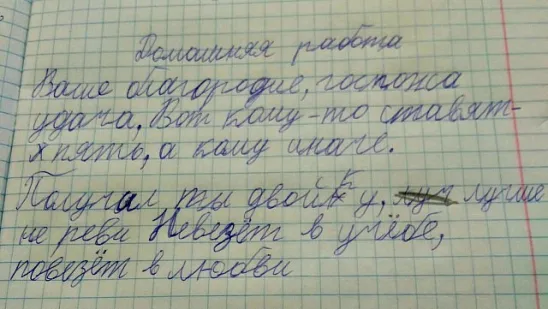 Домашняя работа
Ваше благородие, госпожа
удача, Вот кому-то ставят-
х пять, а кому иначе.
Получил ты двойку, луч лучше
не реви Невезёт в учёбе,
повезёт в любви